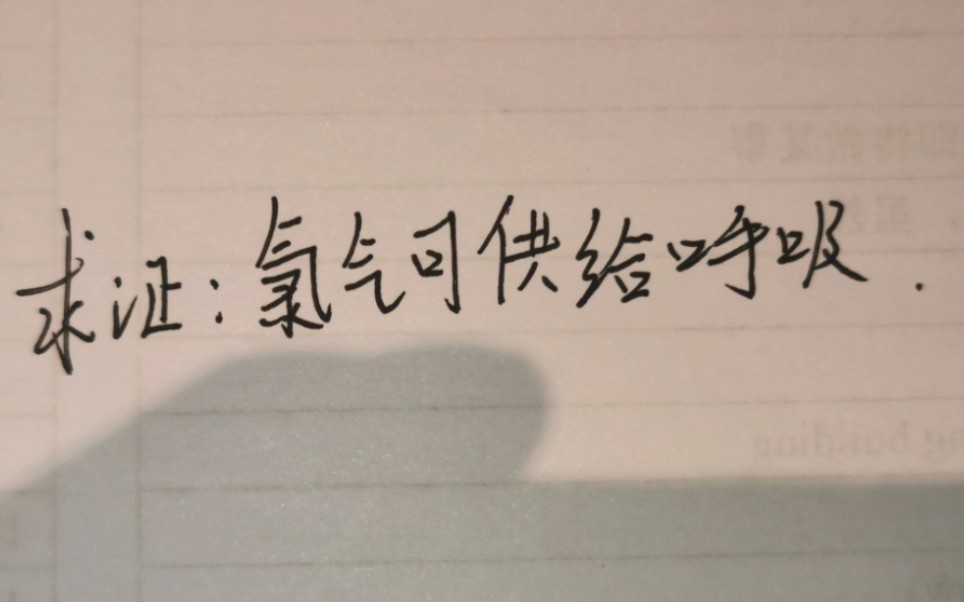 求证：氯气可供给呼吸．